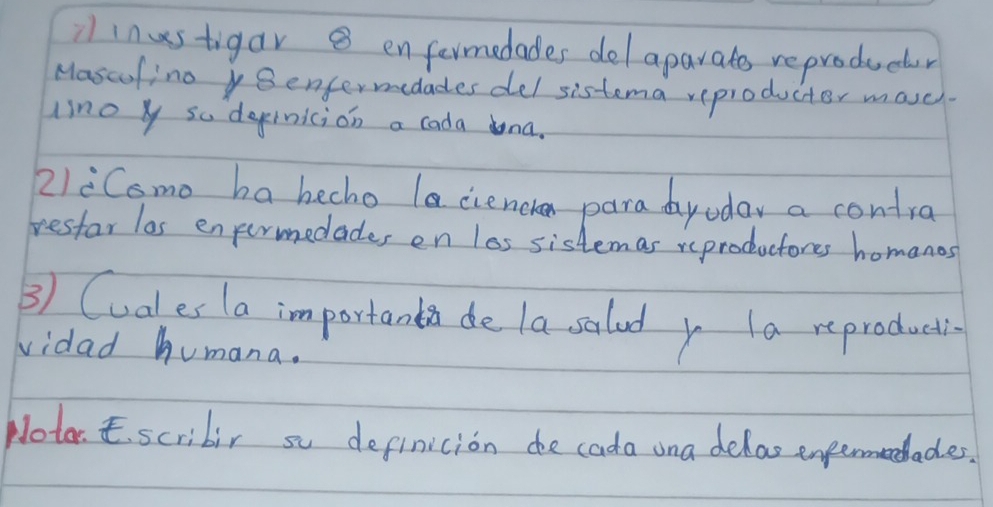 1) Investigar 8 enfermedades del aparato reproductor
Masculino y 8 enfermedades del sistema reproductor mascu-
lino y su definición a cada una.
2) ¿Como ha hecho la ciencia para ayudar a contra
restar las enfermedades en los sistemas reproductores humanos
3) Cual es la importancia de la salud y la reproducti-
vidad humana.
Nota: Escribir su definición de cada una delas enfermedades.